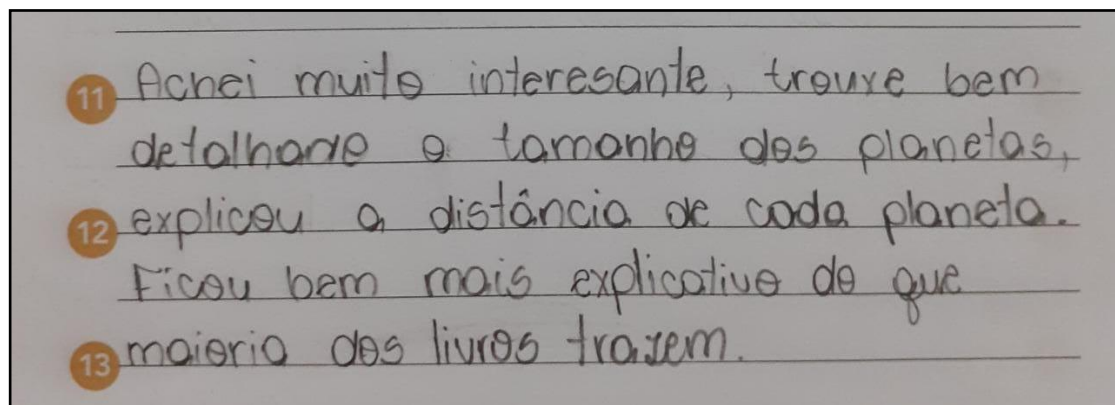 11 Achei muito interesante, trouxe bem
detalhado o tamanho dos planetas,
12 explicou a distância de cada planeta.
Ficou bem mais explicativo do que
13 maioria dos livros trazem.